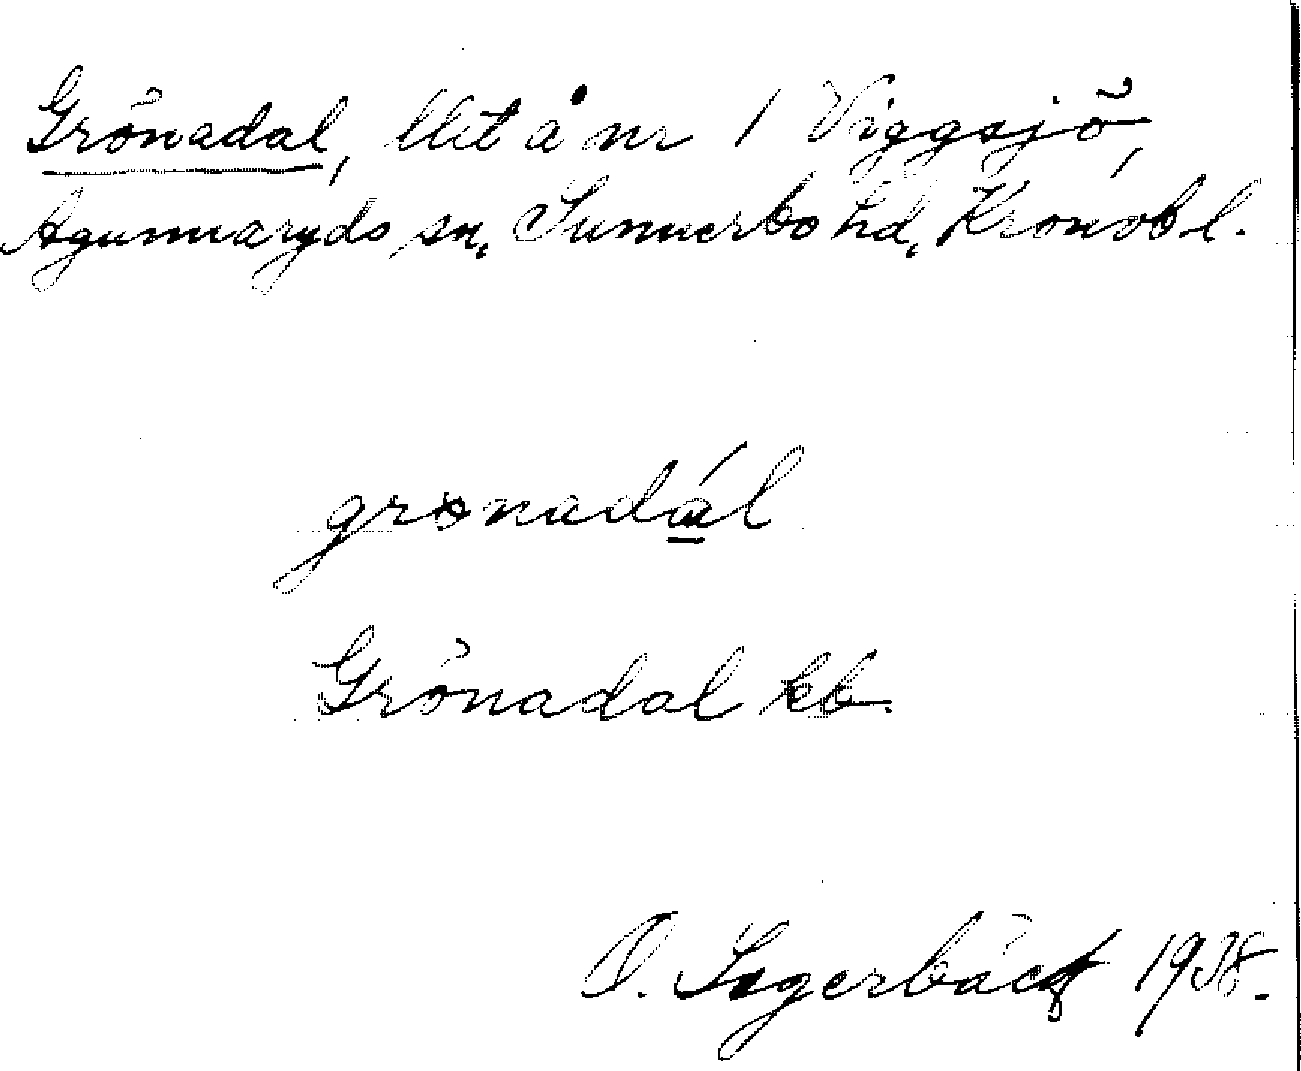 Grönadal, llit å nr 1 Viggsjö,
Agunnaryds sn, Sunnerbo hd, Kronob l.
grønadál
Grönadal kb.
O. Lagerbäck 1938.